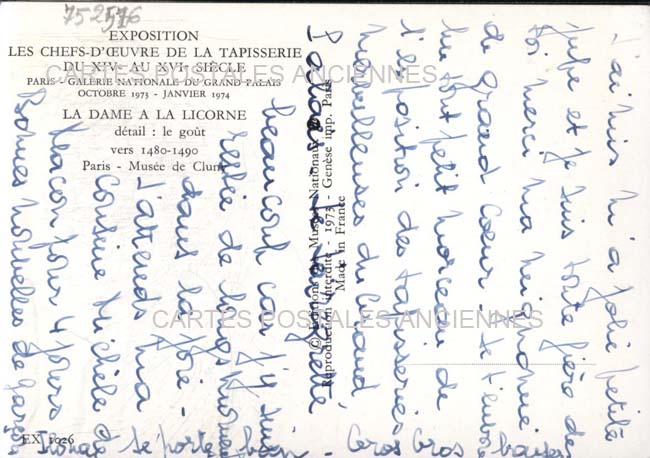 752576
EXPOSITION
LES CHEFS-D'ŒUVRE DE LA TAPISSERIE
DU XIVe AU XVIe SIÈCLE
PARIS - GALERIE NATIONALE DU GRAND PALAIS
OCTOBRE 1973 - JANVIER 1974
LA DAME A LA LICORNE
détail : le goût
vers 1480-1490
Paris - Musée de Cluny
© Editions des Musées Nationaux
Reproduction interdite - 1973 - Genèse imp. Paris
Made in France
CARTES POSTALES ANCIENNES
CARTES POSTALES ANCIENNES
J'ai mis ma jolie petite
jupe et je suis toute fière de
toi merci ma
de grand cœur - Je t'envoie
un tout petit morceau de
l'exposition des tapisseries
merveilleuses du Grand
Palais. Je
beaucoup car j'y suis
restée de
dans la joie -
J'attends ma
cousine Michèle de
Macon pour 4 jours
Bonnes nouvelles de
se porte bien - Gros Gros baisers
EX 1026